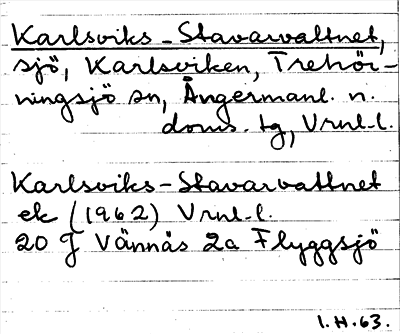 Karlsviks-Stavarvattnet,
sjö, Karlsviken, Trehör-
ningsjö sn, Ångermanl. n.
doms. tg, Vrnl-l.
Karlsviks-Stavarvattnet
ek (1962) Vrnl-l.
20 J Vännäs 2a Flyggsjö
I.H.63.